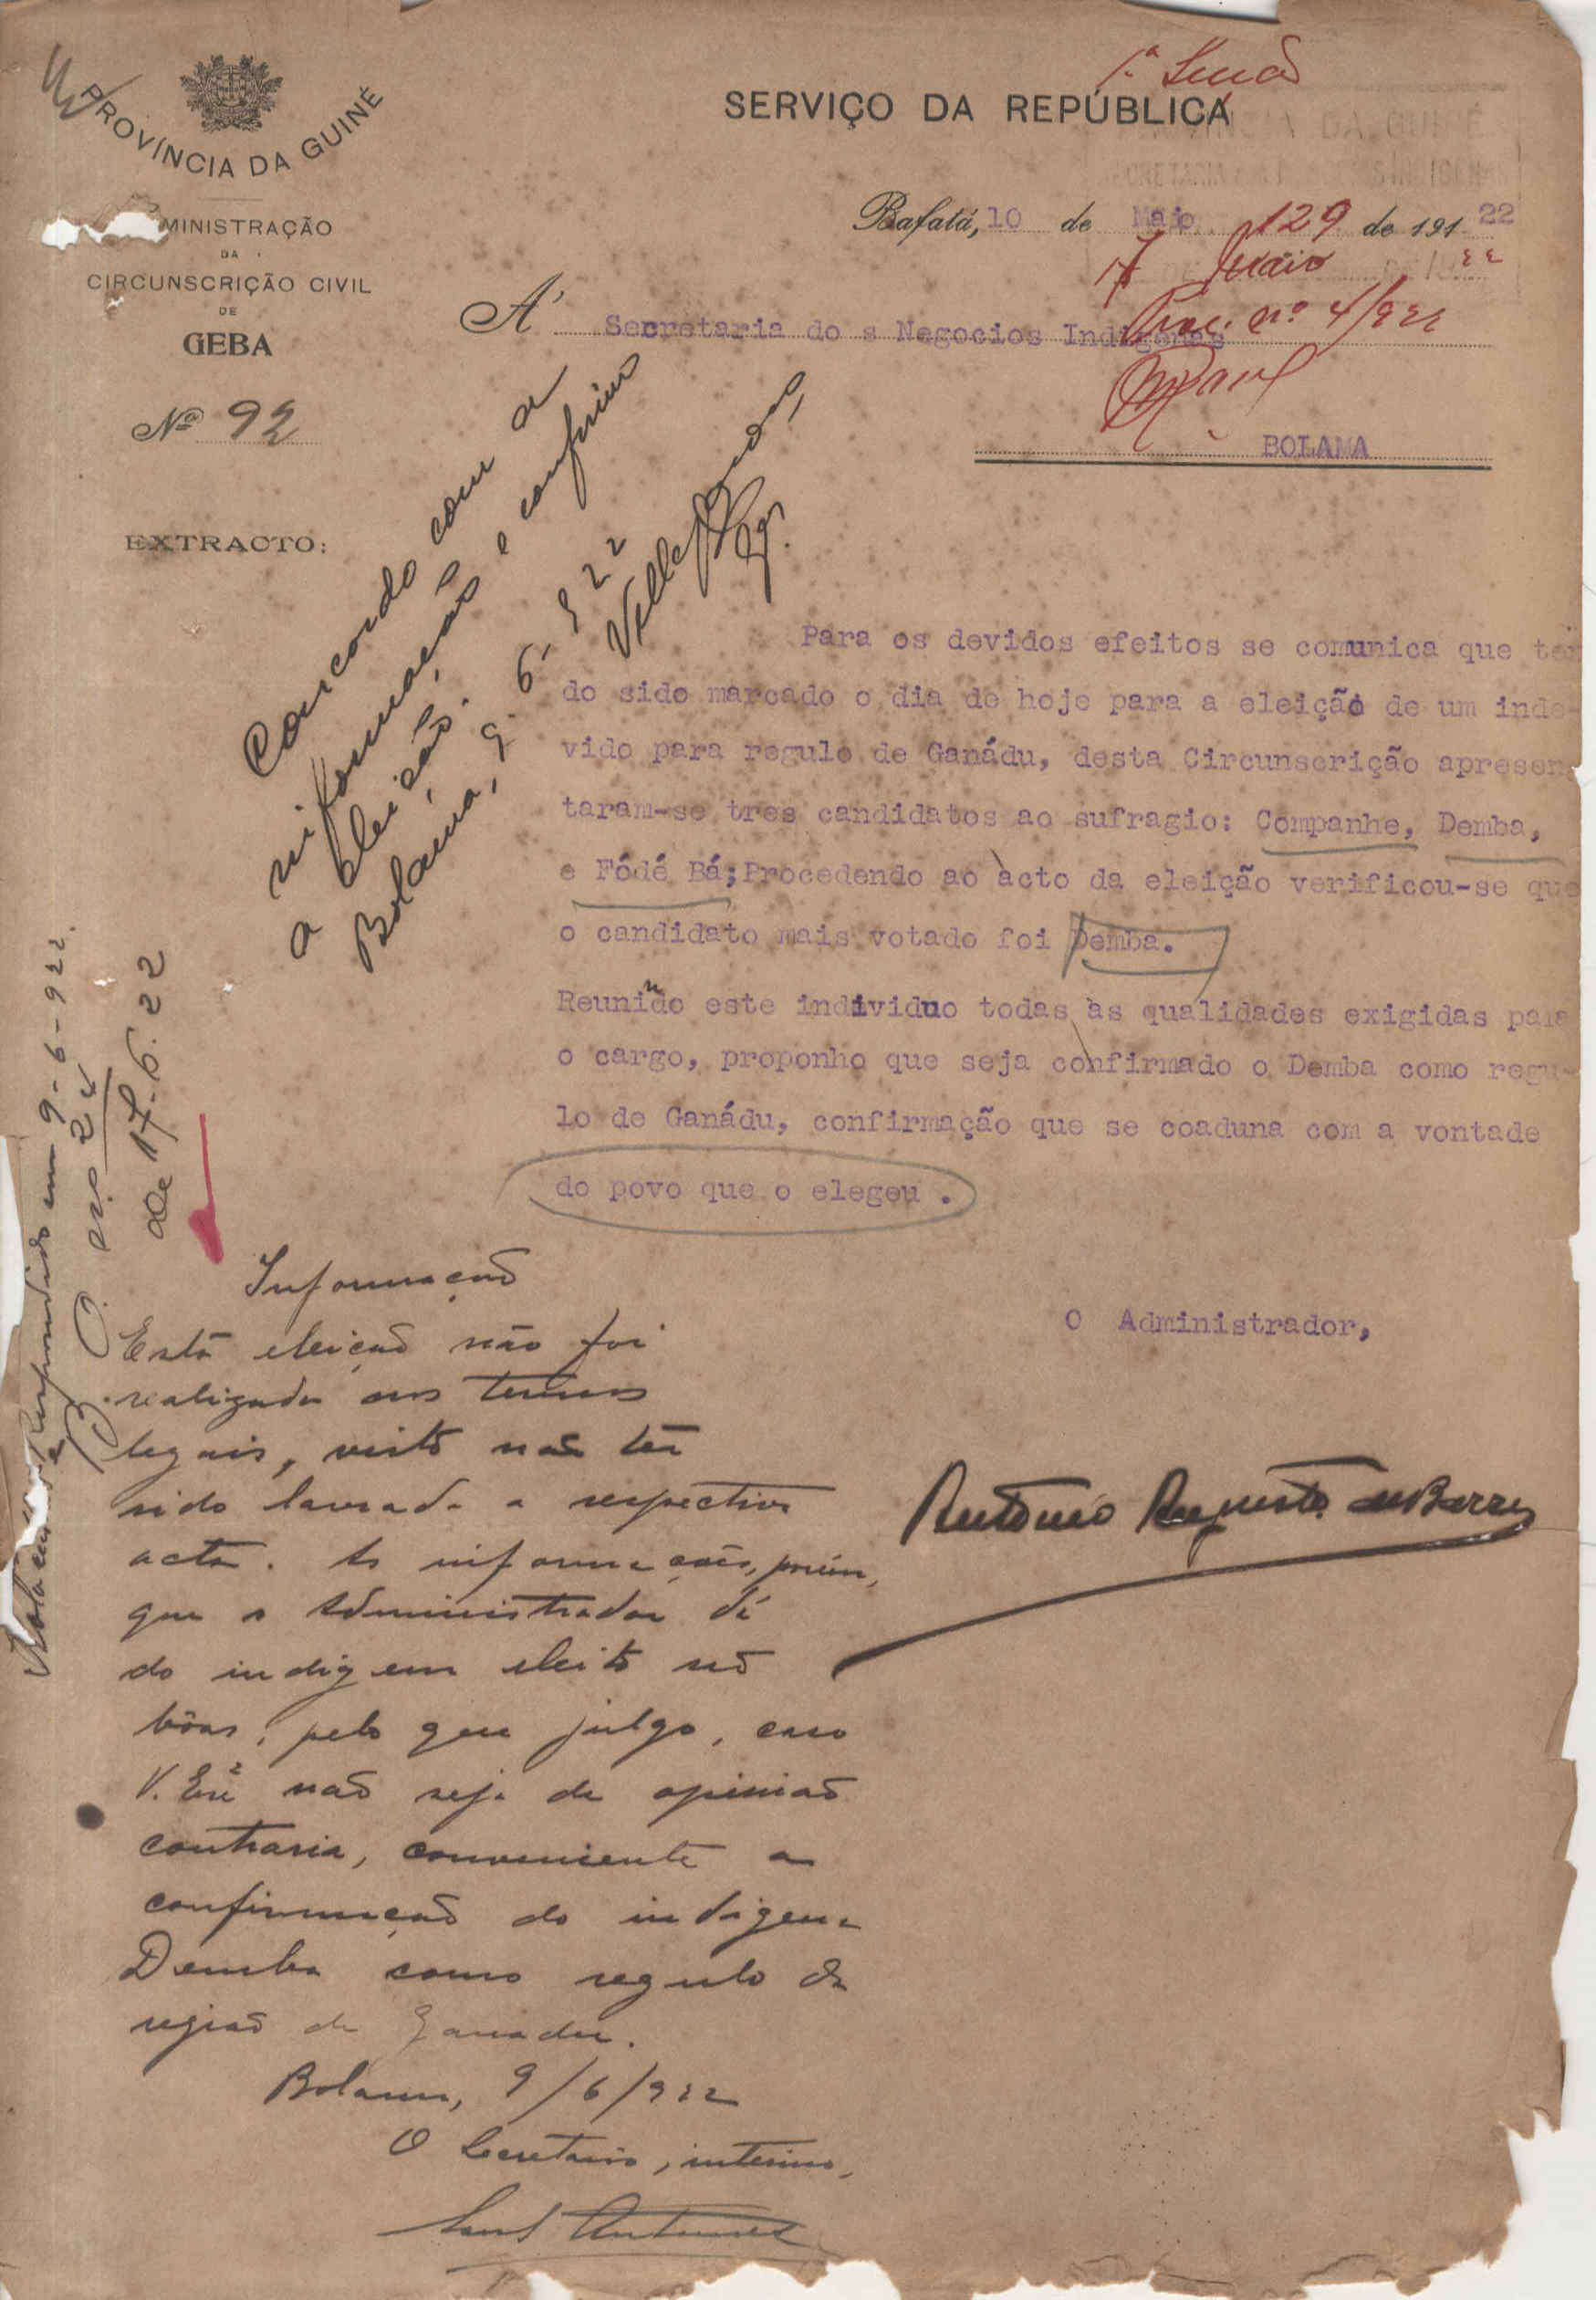 PROVÍNCIA DA GUINÉ
MINISTRAÇÃO
DA
CIRCUNSCRIÇÃO CIVIL
DE
GEBA
Nº 92
EXTRACTO:
1.ª
SERVIÇO DA REPÚBLICA
Bafatá, 10 de Maio de 191 22
129
17 Maio 22
Proc. nº 4/922
A' Secretaria do s Negocios Indigenas
BOLAMA
Concordo com a
informação e confirmo
a eleição.
Bolama, 9-6-922
Para os devidos efeitos se comunica que ten
do sido marcado o dia de hoje para a eleição de um inde-
vido para regulo de Ganádu, desta Circunscrição apresen
taram-se tres candidatos ao sufragio: Companhe, Demba,
e Fódé Bá; Procedendo ao acto da eleição verificou-se que
o candidato mais votado foi Demba.
Reunindo este individuo todas as qualidades exigidas para
o cargo, proponho que seja confirmado o Demba como regu-
lo de Ganádu, confirmação que se coaduna com a vontade
do povo que o elegeu .
O Administrador,
António Augusto de Barros
Respondido em 9-6-922.
nº 24
de 17-6-22
Informação
Esta eleição não foi
realizada nos termos
legais, visto não ter
sido lavrada a respectiva
acta. As informações, porém,
que o Administrador dá
do indigena eleito são
bôas, pelo que julgo, caso
V. Exª não seja de opinião
contraria, conveniente a
confirmação do indigena
Demba como regulo da
região de Ganadu.
Bolama, 9/6/922
O Secretario, interino,
Antunes